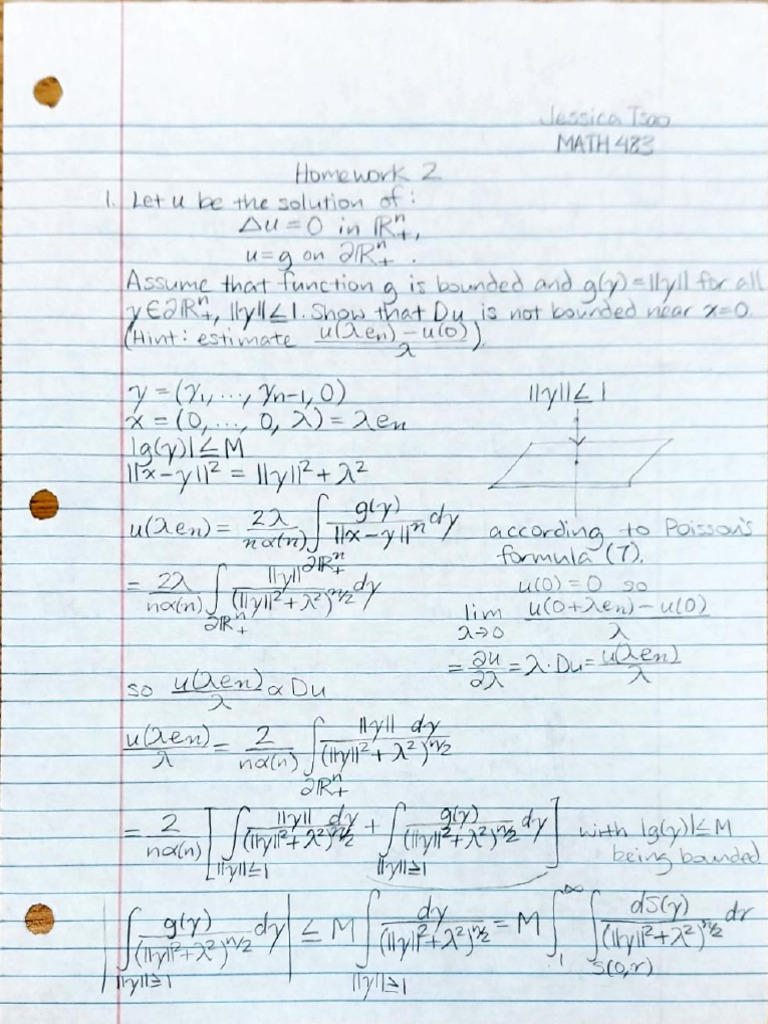 Jessica Tsao
MATH 483
Homework 2
1. Let u be the solution of:
Δu = 0 in ℝⁿ₊,
u = g on ∂ℝⁿ₊.
Assume that function g is bounded and g(y) = ||y|| for all
y ∈ ∂ℝⁿ₊, ||y|| ≤ 1. Show that Du is not bounded near x=0.
(Hint: estimate (u(λeₙ) − u(0))/λ).
y = (y₁, ..., yₙ₋₁, 0)
x = (0, ..., 0, λ) = λeₙ
|g(y)| ≤ M
||x−y||² = ||y||² + λ²
||y|| ≤ 1
u(λeₙ) = 2λ/(nα(n)) ∫_{∂ℝⁿ₊} g(y)/||x−y||ⁿ dy
according to Poisson's
formula (7).
= 2λ/(nα(n)) ∫_{∂ℝⁿ₊} ||y||/(||y||²+λ²)^{n/2} dy
u(0) = 0 so
lim_{λ→0} (u(0+λeₙ) − u(0))/λ
= ∂u/∂λ = λ·Du = u(λeₙ)/λ
so u(λeₙ)/λ ∝ Du
u(λeₙ)/λ = 2/(nα(n)) ∫_{∂ℝⁿ₊} ||y|| dy/(||y||² + λ²)^{n/2}
= 2/(nα(n)) [∫_{||y||≤1} ||y|| dy/(||y||²+λ²)^{n/2} + ∫_{||y||≥1} g(y)/(||y||²+λ²)^{n/2} dy] with |g(y)| ≤ M
being bounded
|∫_{||y||≥1} g(y)/(||y||²+λ²)^{n/2} dy| ≤ M ∫_{||y||≥1} dy/(||y||²+λ²)^{n/2} = M ∫₁^∞ ∫_{S(0,r)} dS(y)/(||y||²+λ²)^{n/2} dr